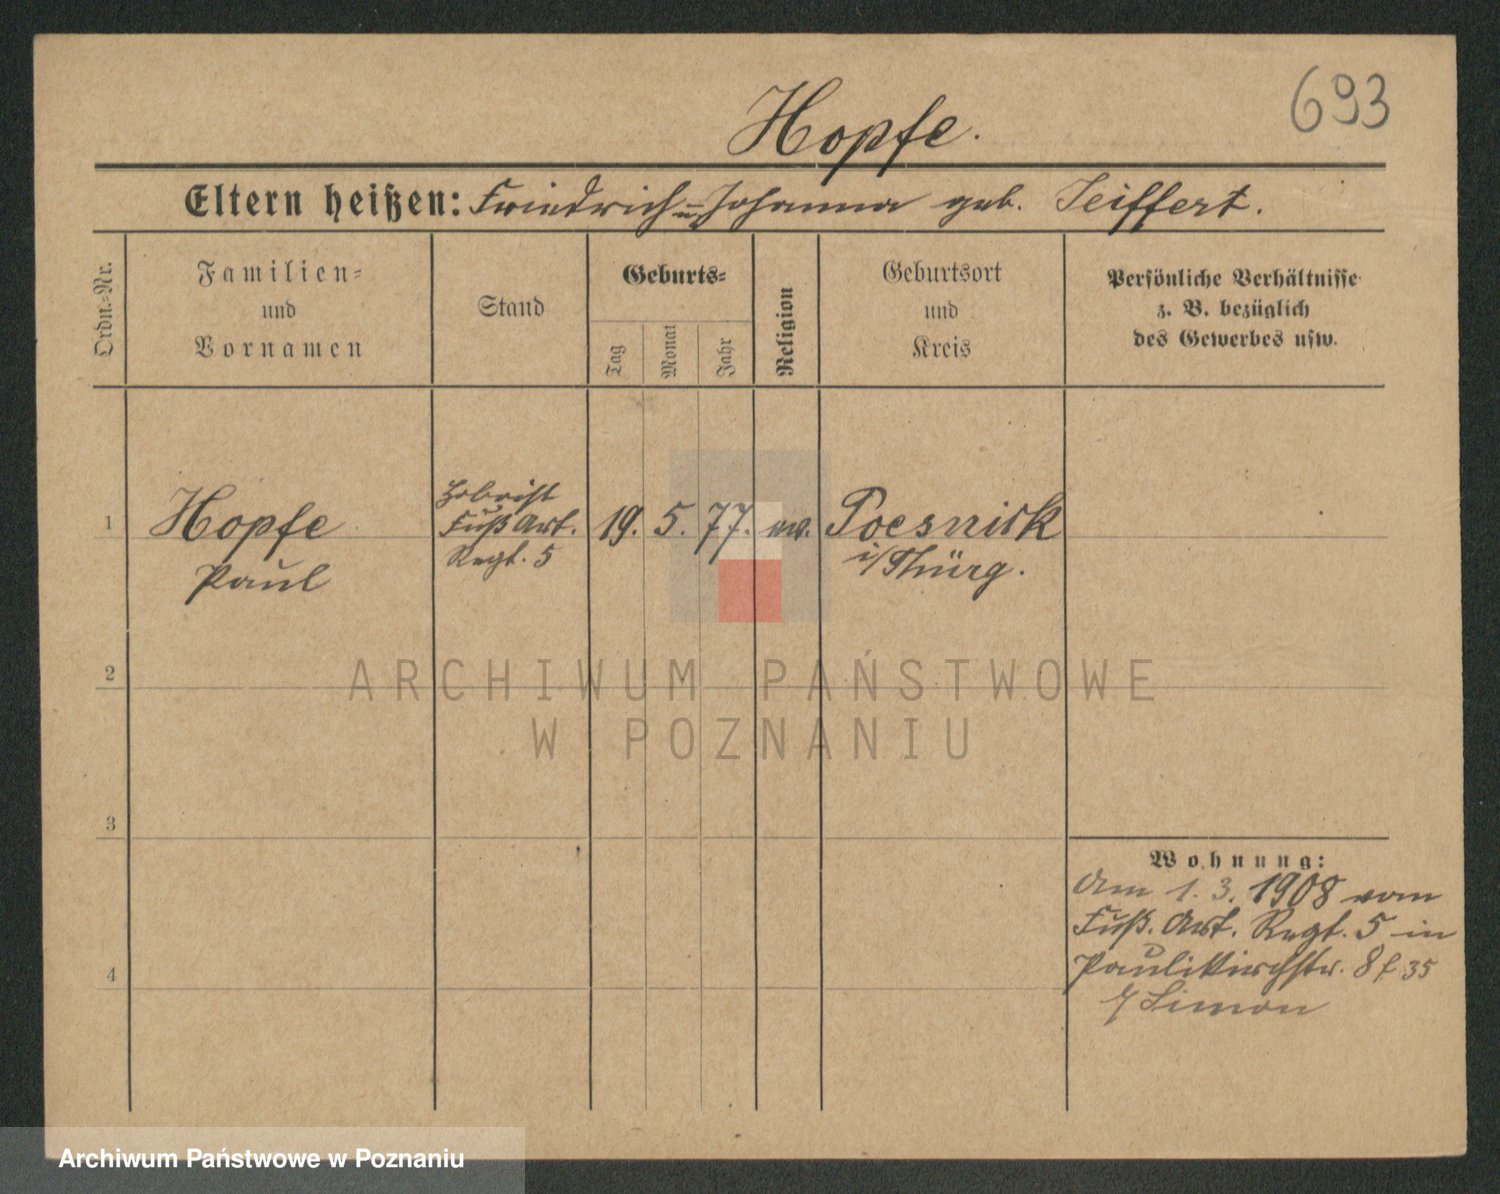 693
Hopfe.
Eltern heißen: Friedrich u. Johanna geb. Seiffert.
Ordn.-Nr.
Familien-
und
Vornamen
Stand
Geburts-
Tag
Monat
Jahr
Religion
Geburtsort
und
Kreis
Persönliche Verhältnisse
z. B. bezüglich
des Gewerbes usw.
1
Hopfe
Paul
Hoboist
Fuß Art.
Regt. 5
19. 5. 77. ev.
Poesneck
i/Thürg.
2
3
4
Wohnung:
Am 1. 3. 1908 vom
Fuß. Art. Regt. 5 in
Paulikirchstr. 8 35
Simon
ARCHIWUM PAŃSTWOWE
W POZNANIU
Archiwum Państwowe w Poznaniu